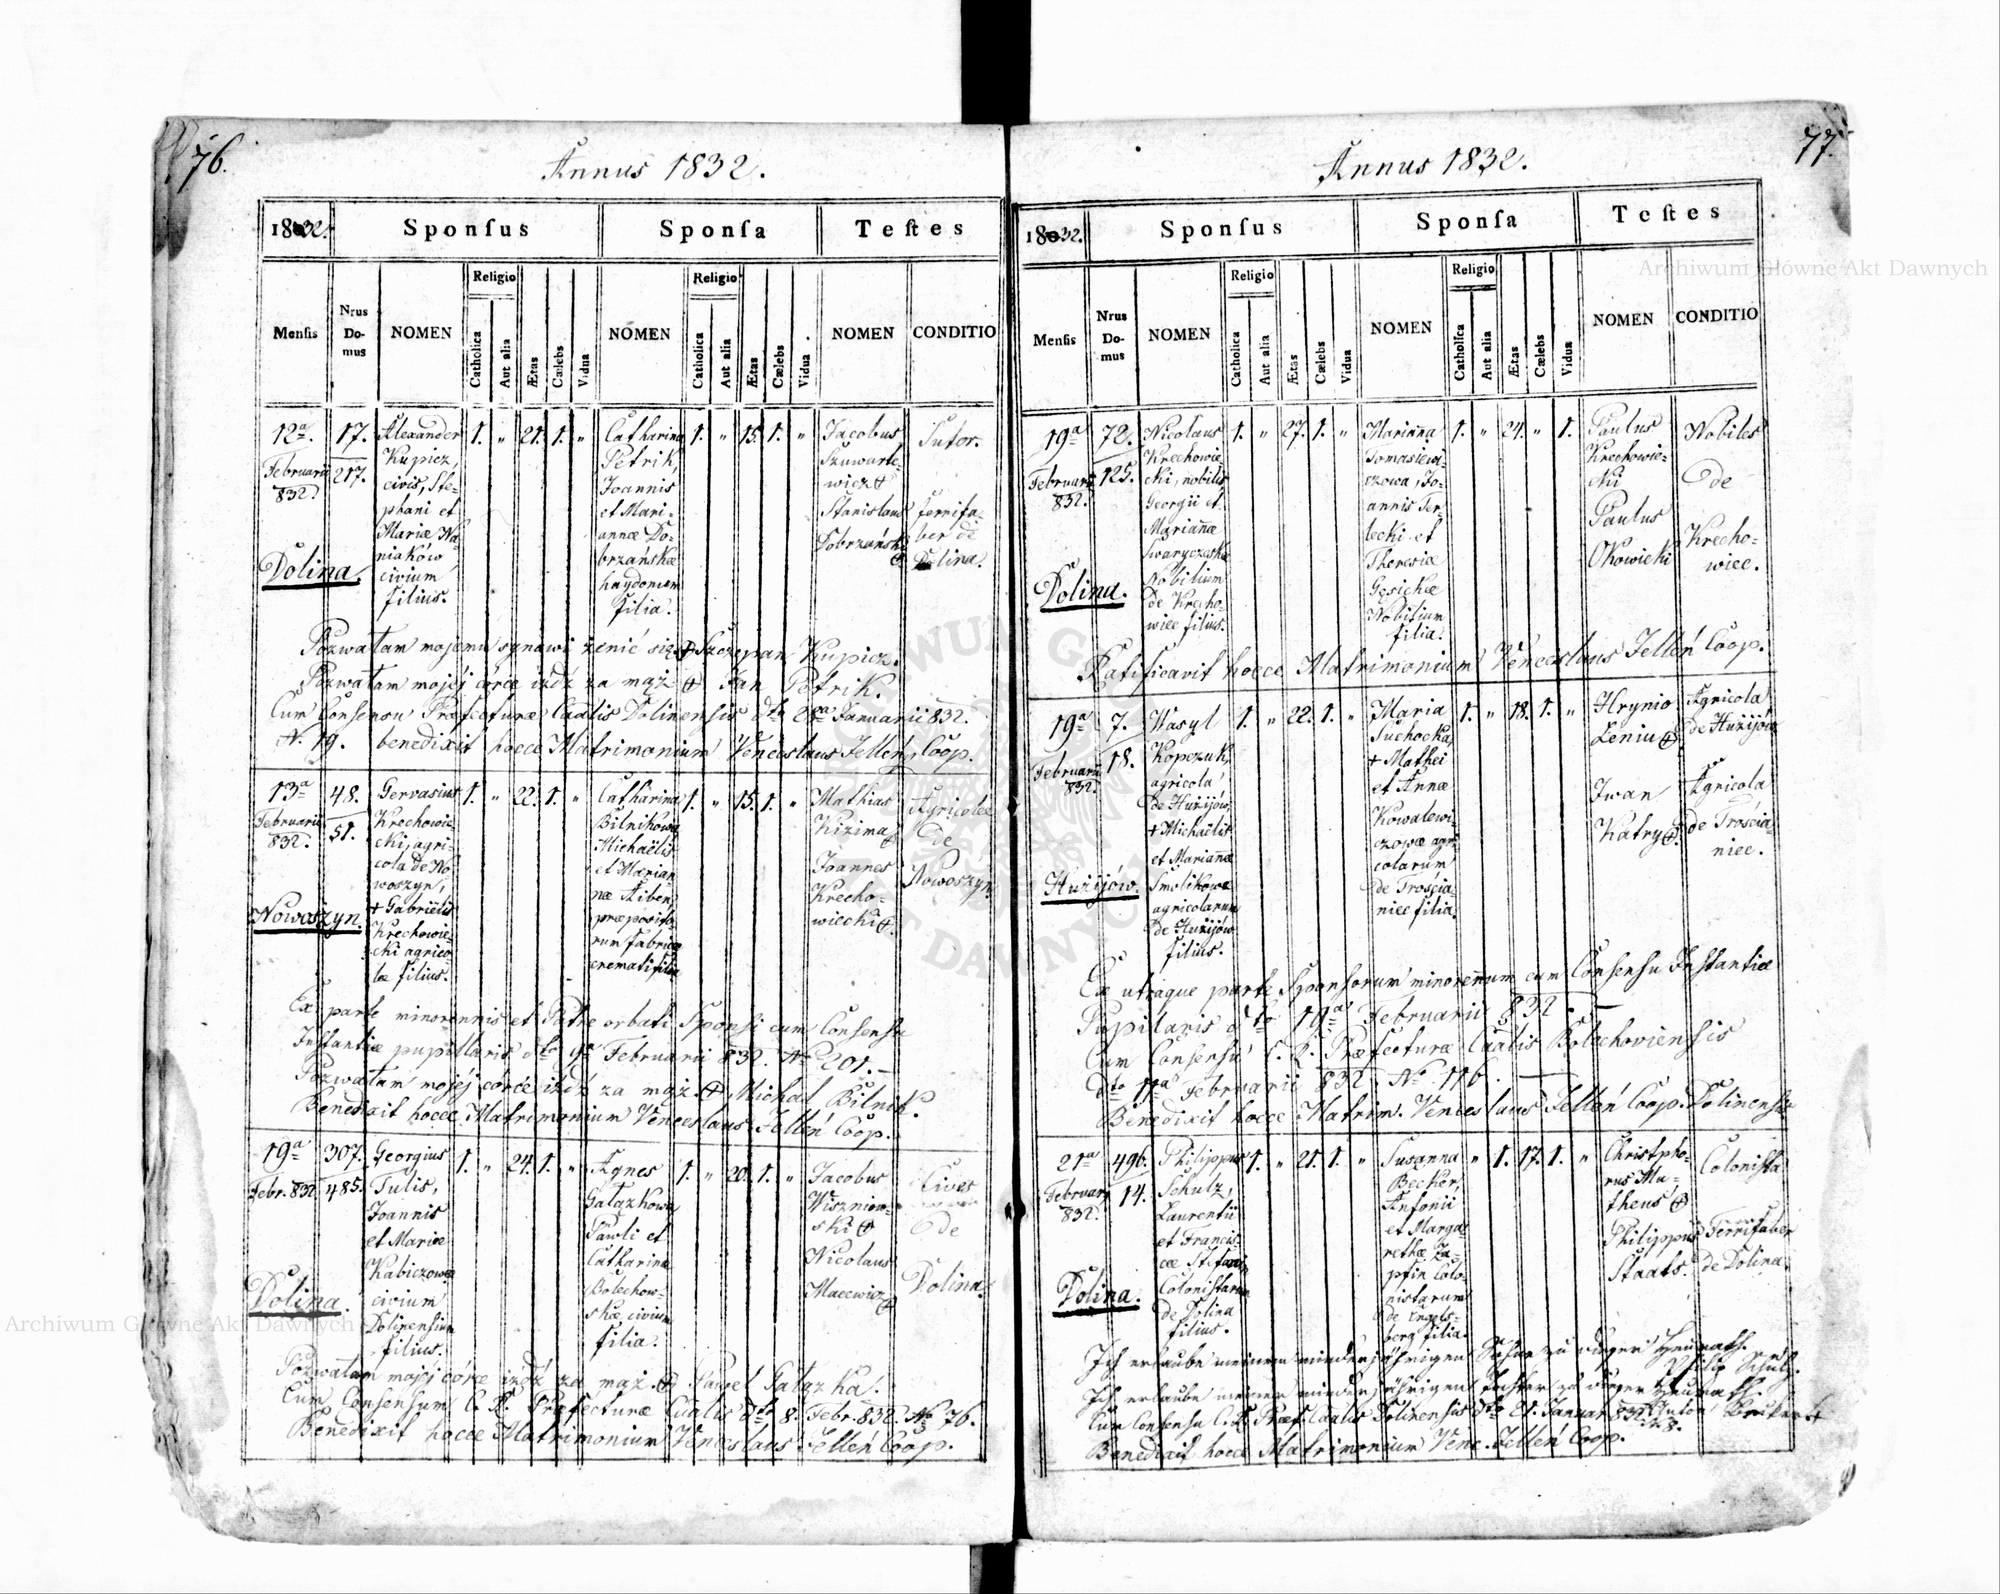 76.
Annus 1832.
1832.
Sponſus
Sponſa
Teſtes
Menſis
Nrus
Do-
mus
NOMEN
Religio
Catholica
Aut alia
Ætas
Cælebs
Vidua
NOMEN
Religio
Catholica
Aut alia
Ætas
Cælebs
Vidua
NOMEN
CONDITIO
12a
Februarii
832.
Dolina.
17.
217.
Alexander
Kupicz
civis, Ste-
phani et
Mariæ Wa-
niaków
civium
filius.
1. " 21. 1. "
Catharina
Petrik,
Joannis
et Mari-
annæ Do-
brzańskæ
haydonum
filia.
1. " 15. 1. "
Jacobus
Szuwarte-
wicz +
Stanislaus
Dobrzański
+
Sutor.
ferrifa-
ber de
Dolina.
Pozwalam mojemu synowi żenić się + Szczepan Kupicz.
Pozwalam mojéj córce iżdź za mąż + Jan Petrik.
Cum Consensu Præfecturæ Caalis Dolinensis dto 28a Januarii 832.
N. 19. benedixit hocce Matrimonium Venceslaus Jelleń, Coop.
13a
Februarii
832.
Nowoszyn.
48.
51.
Gervasius
Krechowie-
cki, agri-
cola de No-
woszyn,
+ Gabrielis
Krechowie-
cki agrico-
læ filius.
1. " 22. 1. "
Catharina
Bilnikówna
Michaëlis
et Marian-
næ Aiben,
præposito-
rum fabricæ
cremati filia
1. " 15. 1. "
Mathias
Kizima
+
Joannes
Krecho-
wiecki +.
Agricolæ
de
Nowoszyn
Ex parte minorennis et Patre orbati Sponsi cum Consensu
Instantiæ pupillaris dto 9a Februarii 832. No 201.-
Pozwalam mojéj córce iżdź za mąż. + Michał Bilnik.
Benedixit hocce Matrimonium Venceslaus Jelleń Coop.
19a
Febr. 832
Dolina.
307.
485.
Georgius
Tulis,
Joannis
et Mariæ
Kabiczowæ
civium
Dolinensium
filius.
1. " 24. 1. "
Agnes
Gałązkowa
Pawli et
Catharina
Bolechow-
skæ civium
filia.
1. " 20. 1. "
Jacobus
Wiszniow-
ski +
Nicolaus
Macewicz
+
Cives
de
Dolina.
Pozwalam mojéj córce indź za mąż. + Paweł Gałązka.
Cum Consensum C. R. Præfecturæ Caalis dto 8. Febr. 832. No 76.
Benedixit hocce Matrimonium Venceslaus Jelleń Coop.
77.
Annus 1832.
1832.
Sponſus
Sponſa
Teſtes
Menſis
Nrus
Do-
mus
NOMEN
Religio
Catholica
Aut alia
Ætas
Cælebs
Vidua
NOMEN
Religio
Catholica
Aut alia
Ætas
Cælebs
Vidua
NOMEN
CONDITIO
19a
Februarii
832.
Dolina.
72.
125.
Nicolaus
Krechowie-
cki, nobilis
Georgii et
Mariannæ
Swaryczeskæ
Nobilium
de Krecho-
wiec filius.
1. " 27. 1. "
Marianna
Tomasiewi-
czowa, Jo-
annis Ter-
lecki et
Theresiæ
Gęsickæ
Nobilium
filia.
1. " 24. " 1.
Paulus
Krechowie-
cki
Paulus
Okowicki
Nobiles
de
Krecho-
wiec.
Ratificavit hocce Matrimonium Venceslaus Jelleń Coop.
19a
Februarii
832.
Huzijów.
7.
18.
Wasyl
Kopczuk,
agricola
de Huzijów,
+ Michaëlis
et Mariannæ
Smolikowæ
agricolarum
de Huzijów
filius.
1. " 22. 1. "
Maria
Suchocka,
+ Mathei
et Annæ
Kowalewi-
czowæ agri-
colarum
de Trościa-
niec filia.
1. " 18. 1. "
Hrynio
Leniu +
Iwan
Katry +.
Agricola
de Huzijów
Agricola
de Trościa-
niec.
Ex utraque parte Sponsorum minorennum cum Consensu Instantiæ
Pupilaris dto 19a Februarii 832.
Cum Consensu C. R. Præfecturæ Caalis Bolechoviensis
dto 11a Februarii 832. No 116.
Benedixit hocce Matrim. Venceslaus Jelleń Coop. Dolinensis
21a
Februarii
832.
Dolina.
496.
14.
Philippus
Schulz,
Laurentii
et Francis-
cæ Stefanin
Colonistarum
de Dolina
filius.
1. " 21. 1. "
Susanna
Becker,
Antonii
et Marga-
rethæ Za-
pfin Colo-
nistarum
de Engels-
berg filia.
" 1. 17. 1. "
Christpho-
rus Mu-
theus +
Philippus
Staats.
Colonista
Ferrifaber
de Dolina.
Ich erlaube meinem minderjährigen Sohne zu dieser Heurath.
Philip Schulz.
Ich erlaube meiner minderjährigen Tochter zu dieser Heurath.
Cum Consensu C. R. Præf. Caalis Dolinensis dto 21. Januar 832 No 28.
Benedixit hocce Matrimonium Venc. Jelleń Coop.
Archiwum Główne Akt Dawnych
Archiwum Główne Akt Dawnych